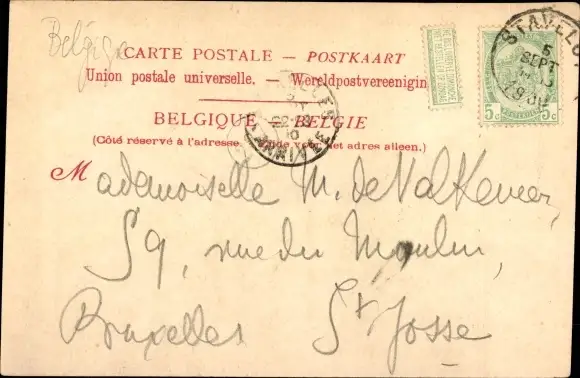 Belgique
CARTE POSTALE — POSTKAART
Union postale universelle. — Wereldpostvereenigin
BELGIQUE — BELGIE
(Côté réservé à l'adresse. voor het adres alleen.)
STAVELO
5
SEPT
5c 5c
ARRIVEE
Mademoiselle M. de Valkeneer,
59, rue du Moulin,
Bruxelles St Josse